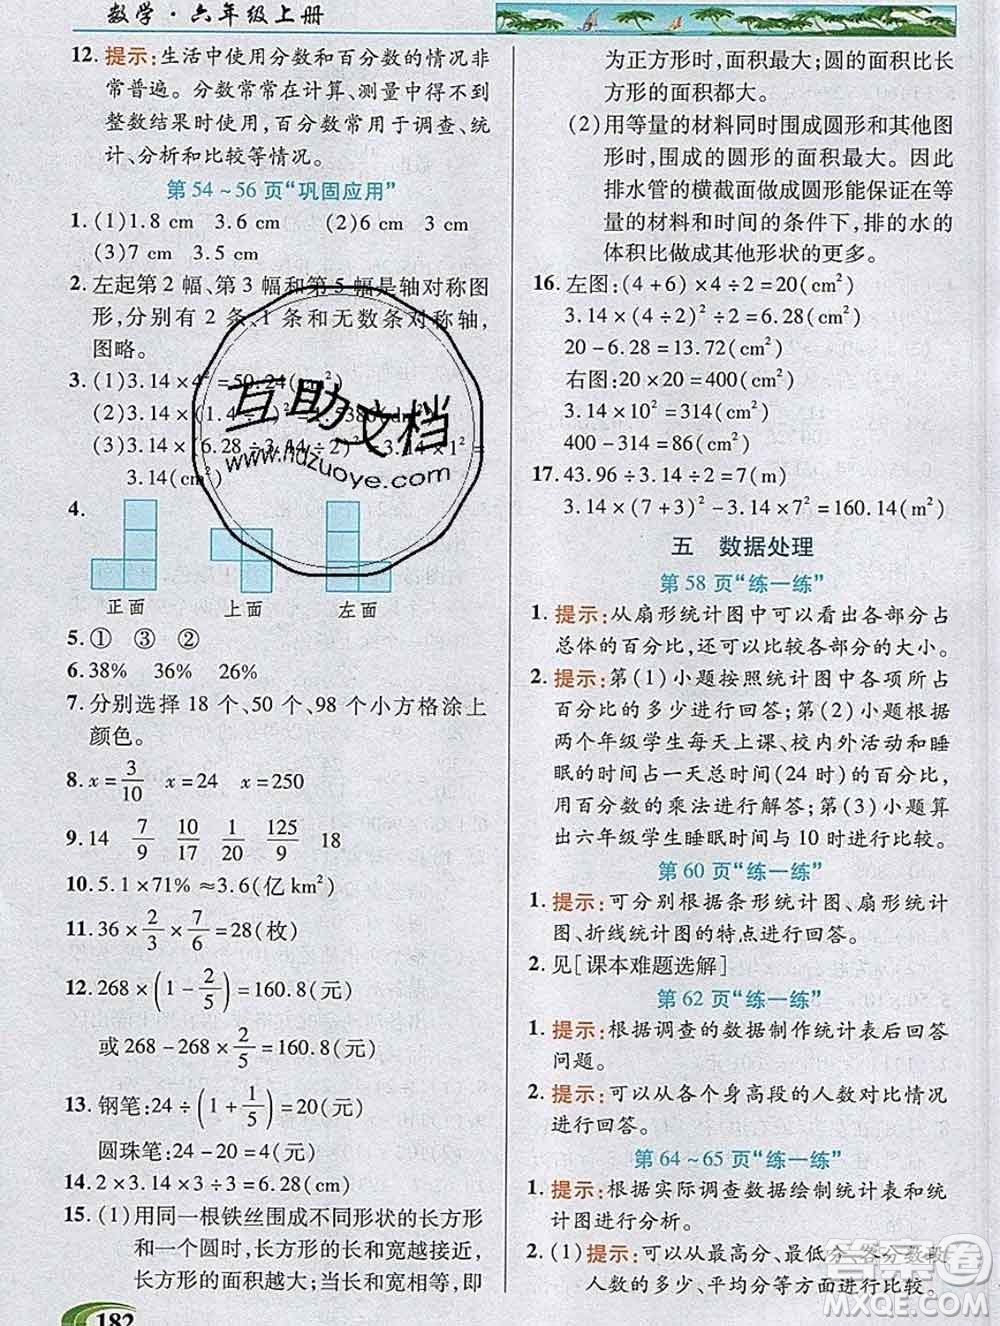 数学·六年级上册
12.提示:生活中使用分数和百分数的情况非
常普遍。分数常常在计算、测量中得不到
整数结果时使用,百分数常用于调查、统
计、分析和比较等情况。
第 54～56 页“巩固应用”
1.(1)1.8 cm 3.6 cm (2)4 cm 2 cm
(3)7 cm 3.5 cm
2.左起第 2 幅、第 3 幅和第 5 幅是轴对称图
形,分别有 2 条、1 条和无数条对称轴,
图略。
3.(1)3.14×4²=50.24(cm²)
(2)3.14×(1.4÷2)²=1.5386(dm²)
(3)3.14×(6.28÷3.14÷2)²=3.14×1²=
3.14(cm²)
4.
正面 上面 左面
5.① ③ ②
6.38% 36% 26%
7.分别选择 18 个、50 个、98 个小方格涂上
颜色。
8. x=3/10 x=24 x=250
9.14 7/9 10/17 1/20 125/9 18
10.5.1×71%≈3.6(亿 km²)
11.36×2/3×7/6=28(枚)
12.268×(1-2/5)=160.8(元)
或 268-268×2/5=160.8(元)
13.钢笔:24÷(1+1/5)=20(元)
圆珠笔:24-20=4(元)
14.2×3.14×3÷3=6.28(cm)
15.(1)用同一根铁丝围成不同形状的长方形
和一个圆时,长方形的长和宽越接近,
长方形的面积越大;当长和宽相等,即
182
为正方形时,面积最大;圆的面积比长
方形的面积都大。
(2)用等量的材料同时围成圆形和其他图
形时,围成的圆形的面积最大。因此
排水管的横截面做成圆形能保证在等
量的材料和时间的条件下,排的水的
体积比做成其他形状的更多。
16.左图:(4+6)×4÷2=20(cm²)
3.14×(4÷2)²÷2=6.28(cm²)
20-6.28=13.72(cm²)
右图:20×20=400(cm²)
3.14×10²=314(cm²)
400-314=86(cm²)
17.43.96÷3.14÷2=7(m)
3.14×(7+3)²-3.14×7²=160.14(m²)
五 数据处理
第 58 页“练一练”
1.提示:从扇形统计图中可以看出各部分占
总体的百分比,还可以比较各部分的大小。
2.提示:第(1)小题按照统计图中各项所占
百分比的多少进行回答;第(2)小题根据
两个年级学生每天上课、校内外活动和睡
眠的时间占一天总时间(24 时)的百分比,
用百分数的乘法进行解答;第(3)小题算
出六年级学生睡眠时间与 10 时进行比较。
第 60 页“练一练”
1.提示:可分别根据条形统计图、扇形统计
图、折线统计图的特点进行回答。
2.见[课本难题选解]
第 62 页“练一练”
1.提示:根据调查的数据制作统计表后回答
问题。
2.提示:可以从各个身高段的人数对比情况
进行回答。
第 64～65 页“练一练”
1.提示:根据实际调查数据绘制统计表和统
计图进行分析。
2.(1)提示:可以从最高分、最低分、各分数段
人数的多少、平均分等方面进行比较。
互助文档
www.hdzuoye.com
答案圈
MXQE.COM